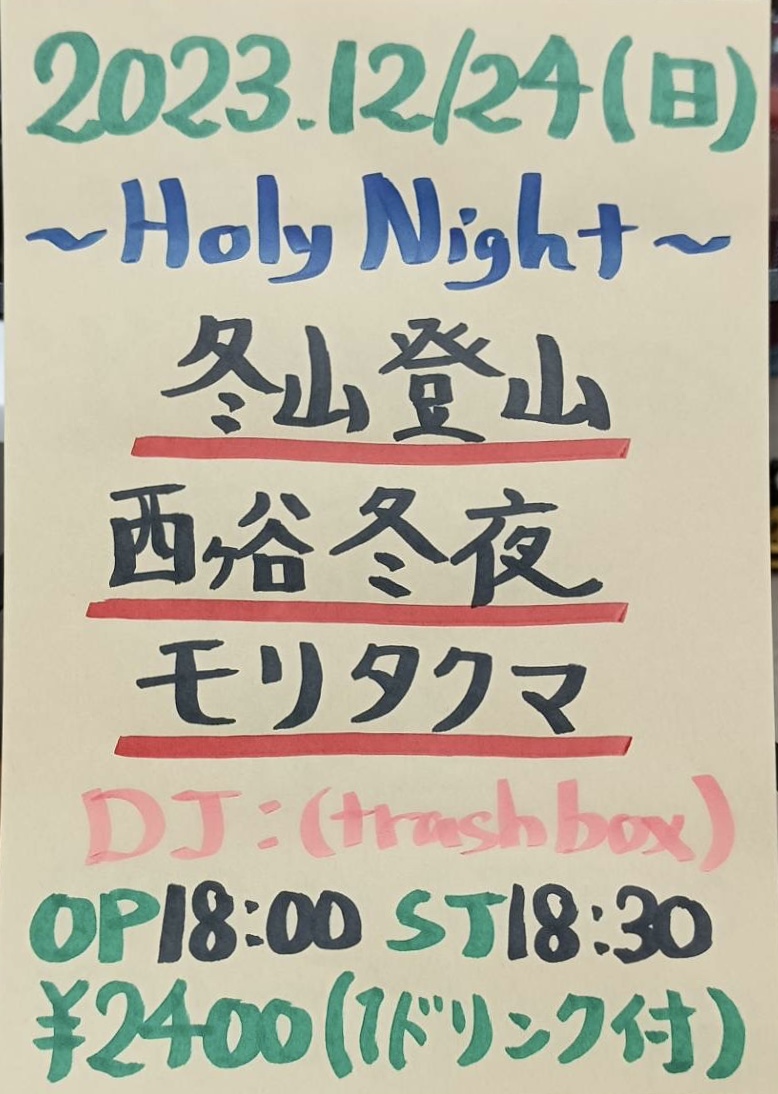 2023.12/24(日)
~Holy Night~
冬山登山
西ヶ谷冬夜
モリタクマ
DJ:(trash box)
OP18:00 ST18:30
¥2400(1ドリンク付)